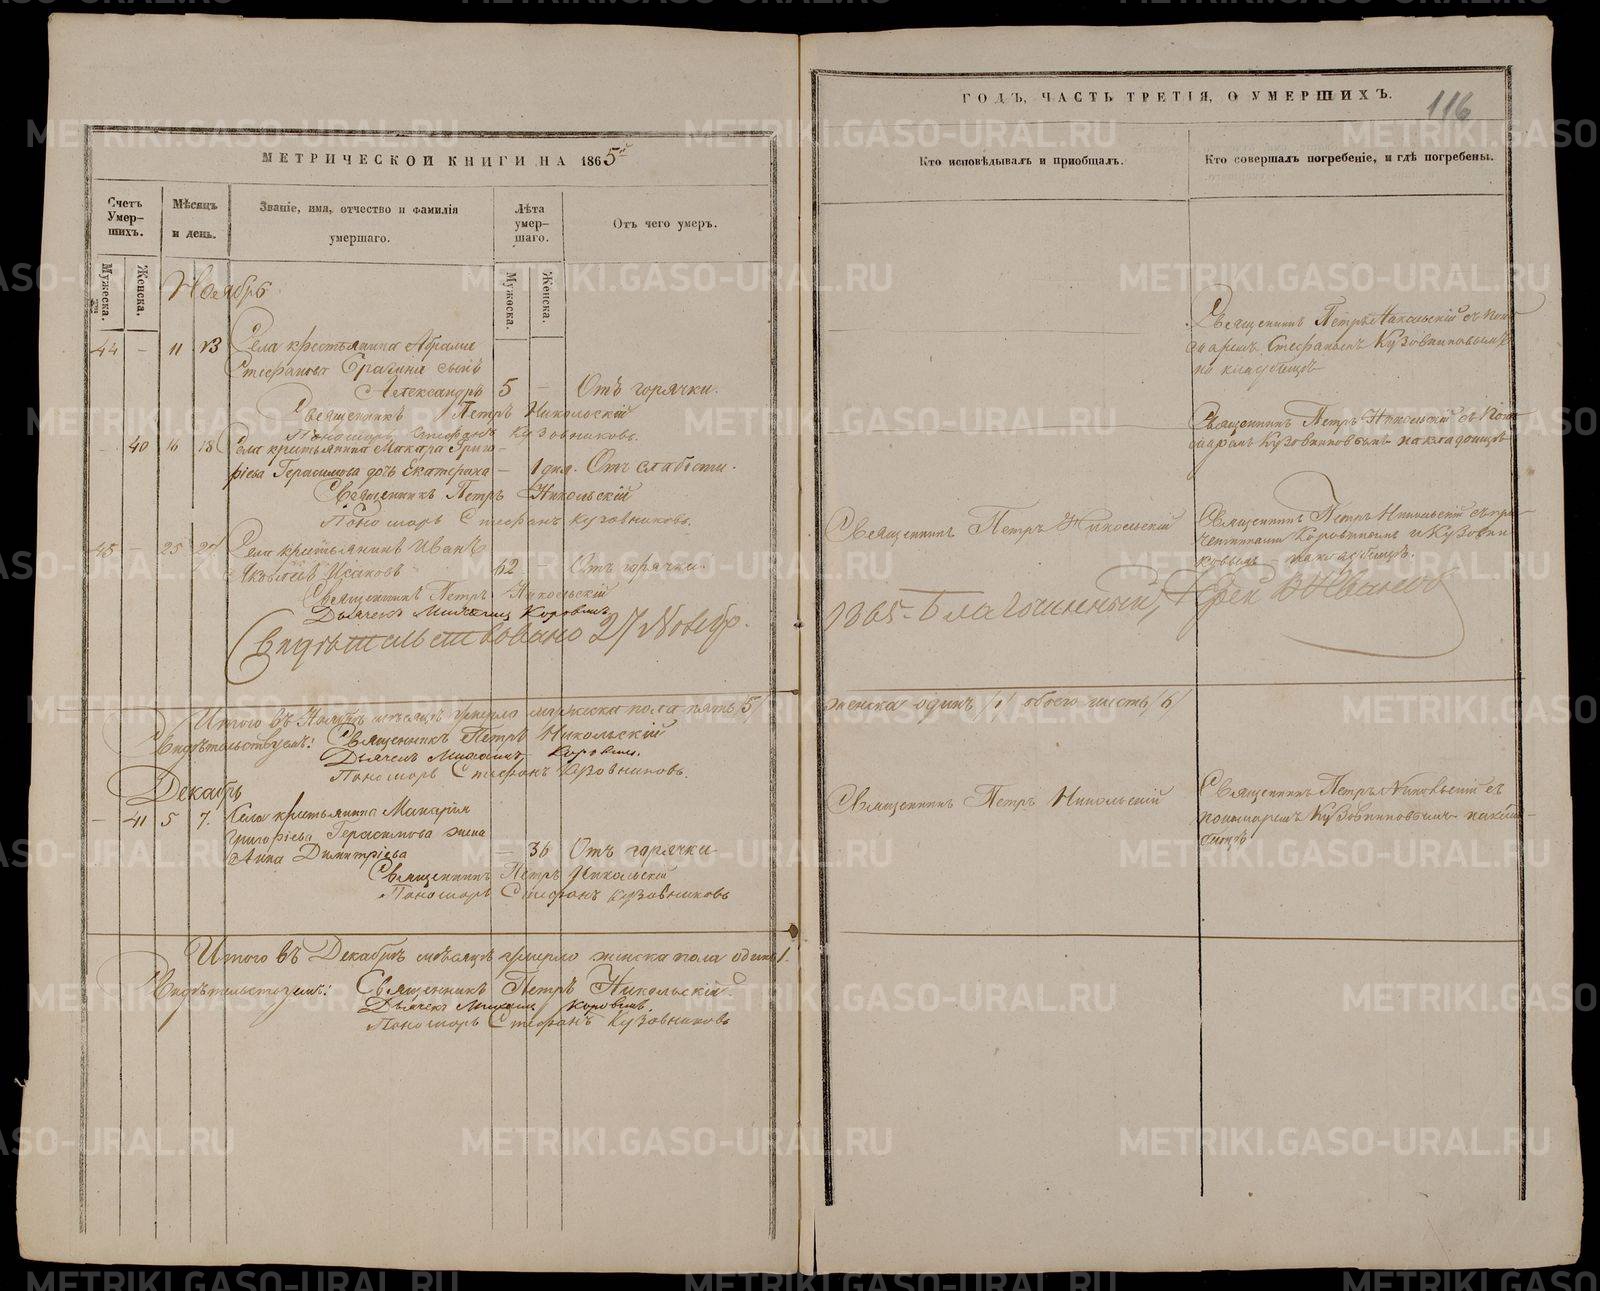 116
МЕТРИЧЕСКОЙ КНИГИ НА 1865й
Счетъ Умер-шихъ.
Мѣсяцъ и день.
Званіе, имя, отчество и фамилія умершаго.
Лѣта умер-шаго.
Отъ чего умеръ.
Мужеска.
Женска.
Мужеска.
Женска.
Ноябрь
44 – 11 13 Села крестьянина
Стефанова сынъ
Александръ 5 – Отъ горячки.
Священникъ Петръ Никольскій
Пономарь Стефанъ Кузовниковъ.
– 40 16 18 Села крестьянина Макара Григо-
рьева Герасимова дочь Екатерина – 1 дня. Отъ слабости.
Священникъ Петръ Никольскій
Пономарь Стефанъ Кузовниковъ.
45 – 25 27 Села крестьянинъ Иванъ
Яковлевъ Исаковъ 62 – Отъ горячки.
Священникъ Петръ Никольскій
Дьячекъ Михаилъ Коровинъ
Свидѣтельствовано 27 Ноябр.
Итого въ Ноябрѣ мѣсяцѣ умерло мужеска пола пять /5/
Свидѣтельствуемъ: Священникъ Петръ Никольскій
Дьячекъ Михаилъ Коровинъ.
Пономарь Стефанъ Кузовниковъ.
Декабрь
– 41 5 7. Села крестьянина
Григорьева Герасимова жена
Анна Димитріева – 36 Отъ горячки
Священникъ Петръ Никольскій
Пономарь Стефанъ Кузовниковъ
Итого въ Декабрѣ мѣсяцѣ умерло женска пола одинъ 1.
Свидѣтельствуемъ: Священникъ Петръ Никольскій.
Дьячекъ Михаилъ Коровинъ.
Пономарь Стефанъ Кузовниковъ
ГОДЪ, ЧАСТЬ ТРЕТІЯ, О УМЕРШИХЪ.
Кто исповѣдывалъ и пріобщалъ.
Кто совершалъ погребеніе, и гдѣ погребены.
Священникъ Петръ Никольскій съ поно-
маремъ Стефаномъ Кузовниковымъ
на кладбищѣ
Священникъ Петръ Никольскій съ поно-
маремъ Кузовниковымъ на кладбищѣ
Священникъ Петръ Никольскій
Священникъ Петръ Никольскій съ при-
четниками Коровинымъ и Кузовни-
ковымъ на кладбищѣ.
1865. Благочинный, В Ивановъ
женска одинъ /1/ обоего шесть /6/
Священникъ Петръ Никольскій
Священникъ Петръ Никольскій съ
пономаремъ Кузовниковымъ на клад-
бищѣ
METRIKI.GASO-URAL.RU